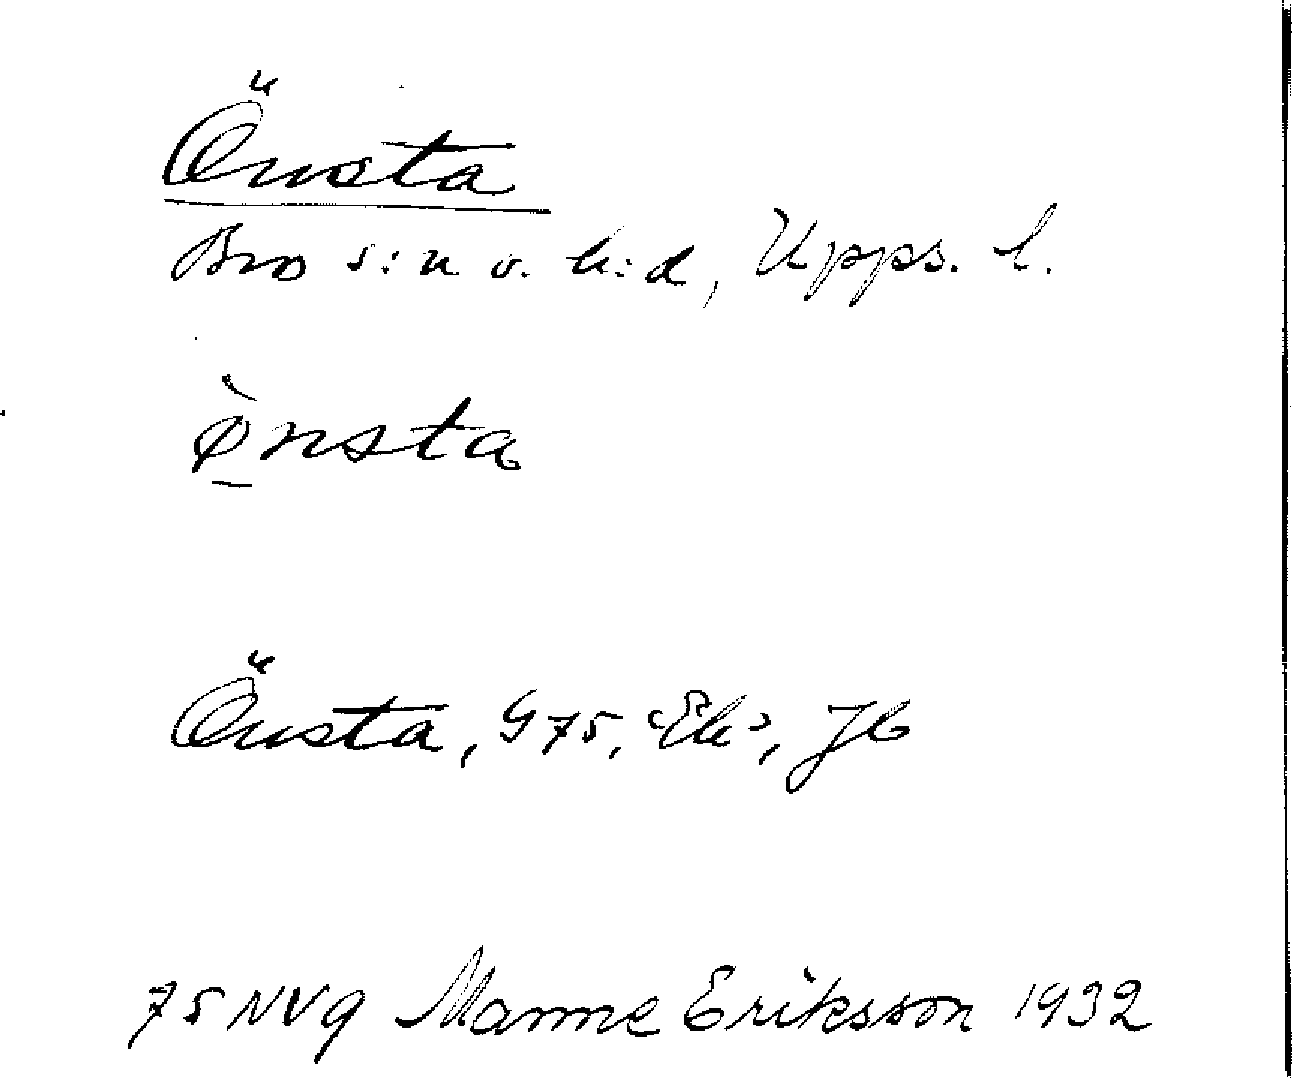 Önsta
Bro s:n o. h:d, Upps. l.
ø̀nsta
Önsta, G75, 'Ek', Jb
75NV9 Manne Eriksson 1932